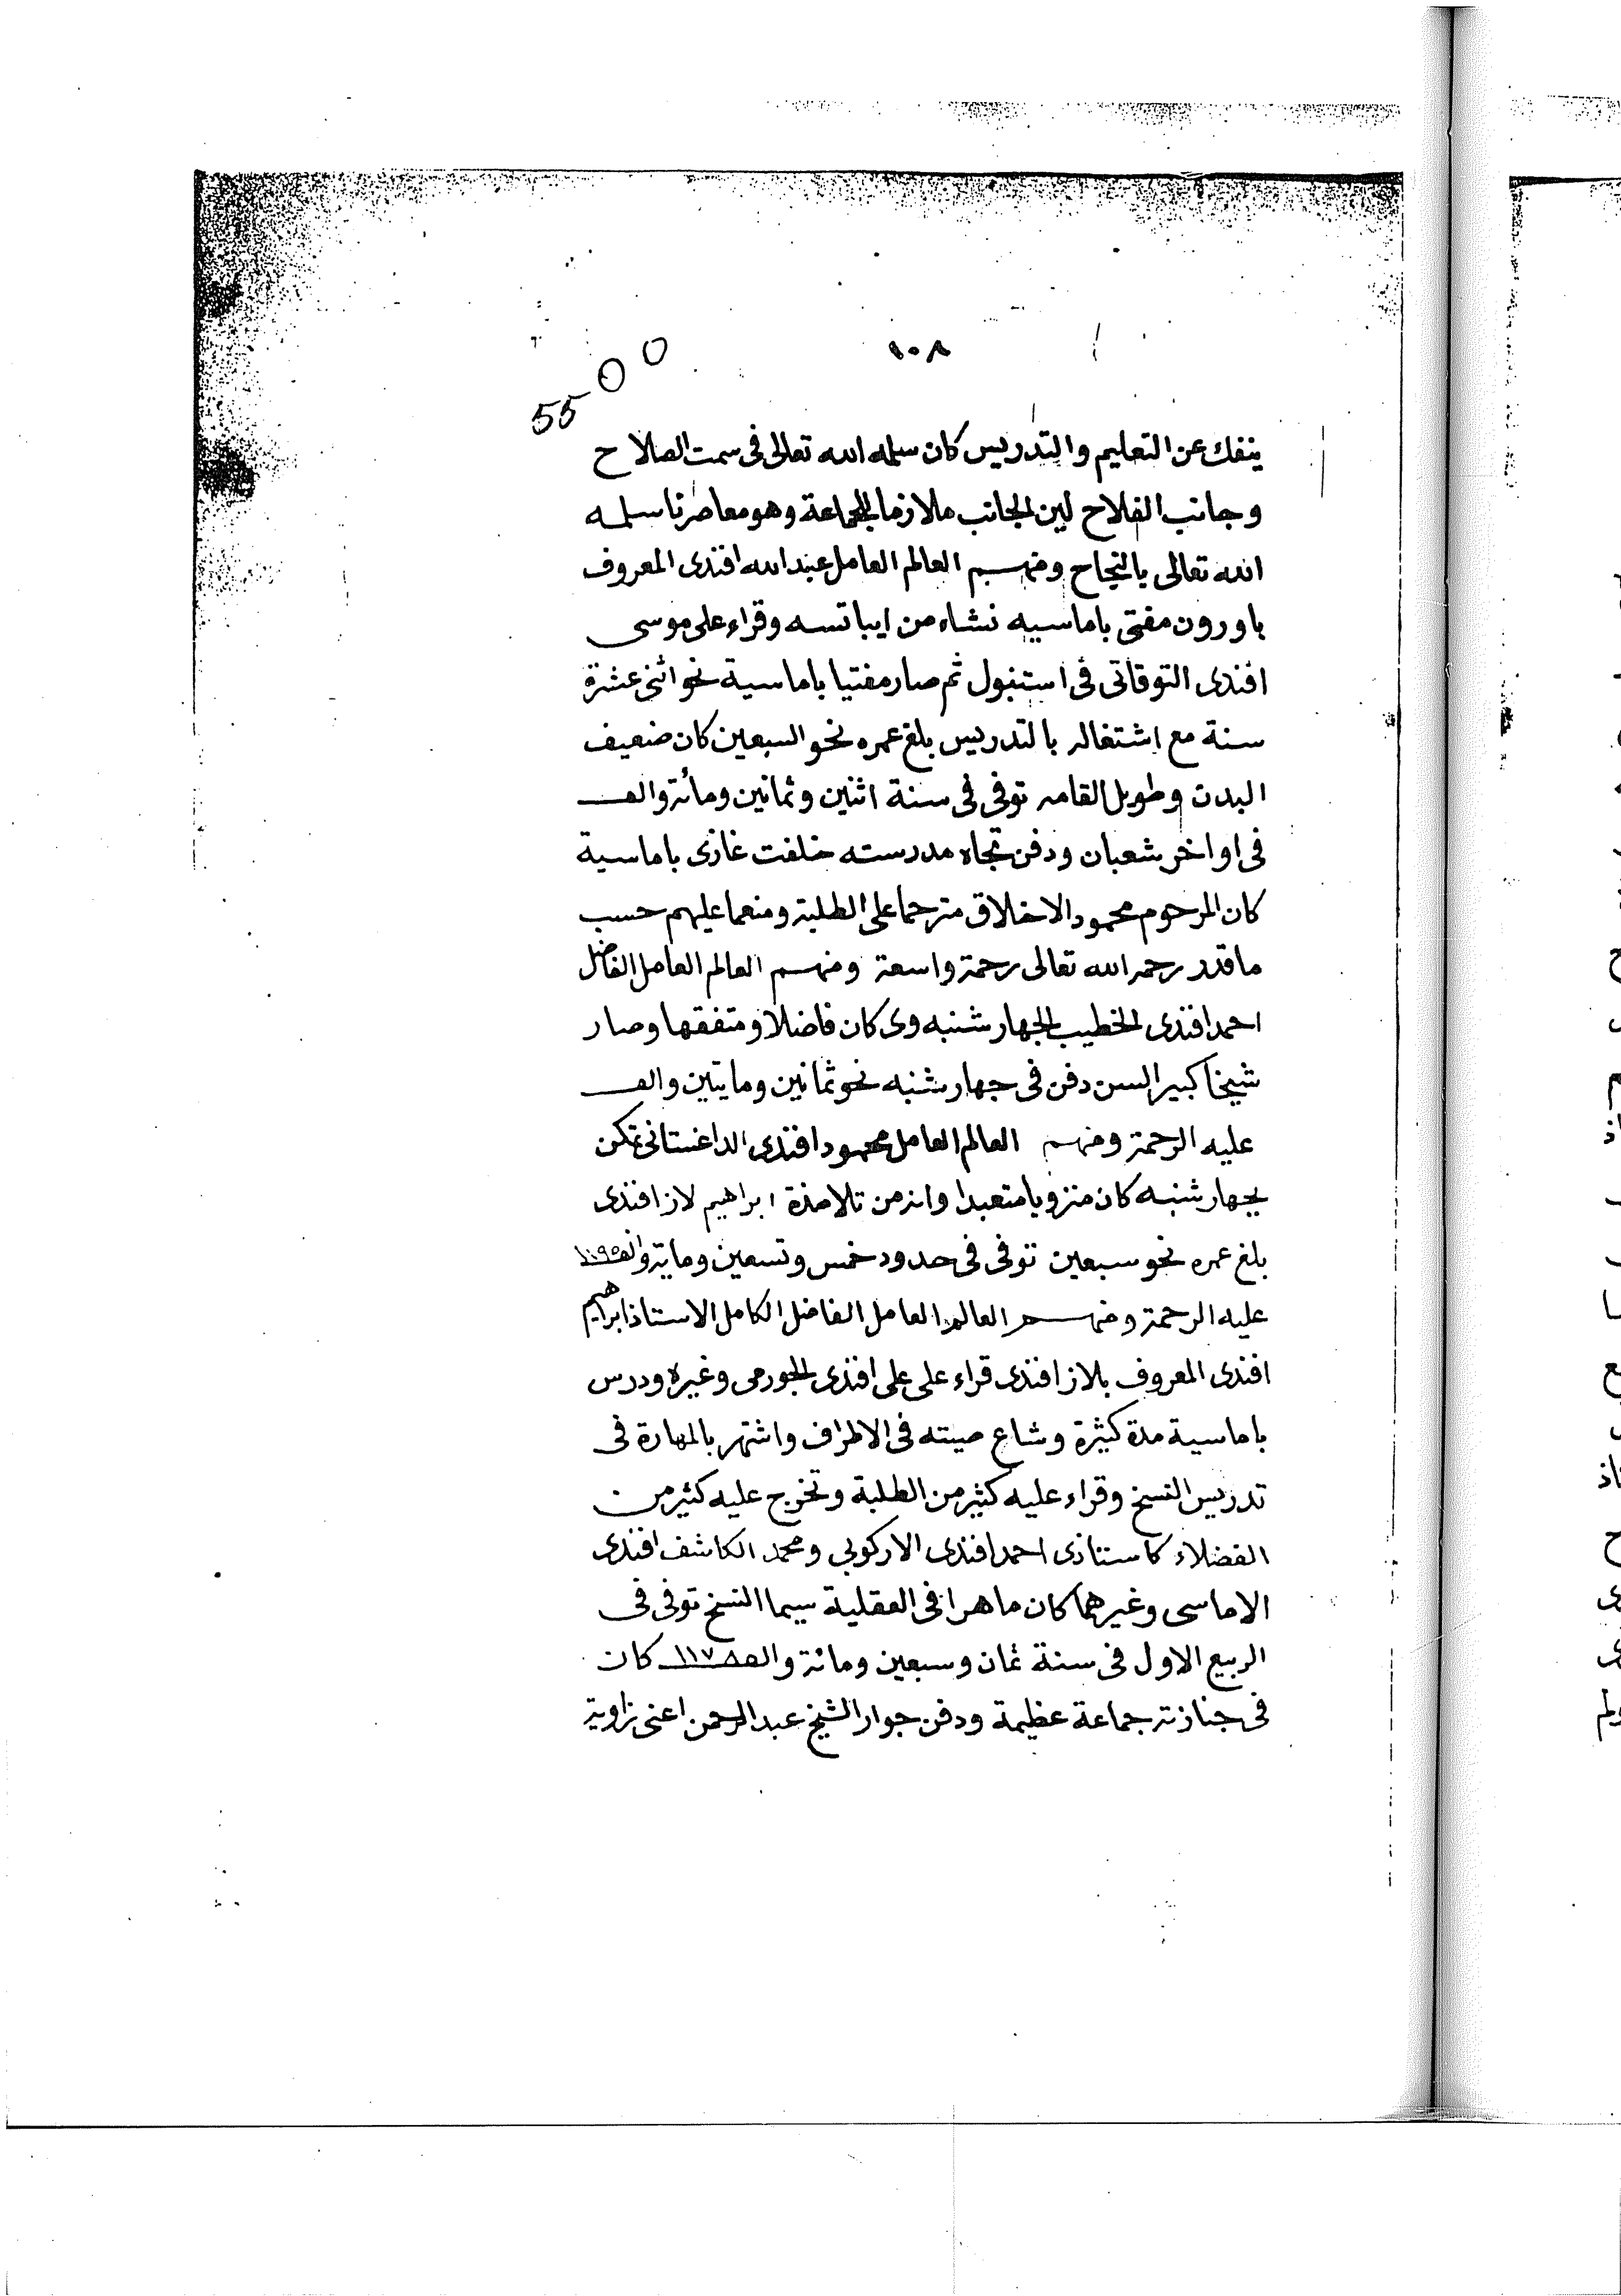 ١٠٨
55
ينفك عن التعليم والتدريس كان سلمه الله تعالى فى سمت الصلاح
وجانب الفلاح لين الجانب ملازما للجماعة وهو معاصرنا سلمه
الله تعالى بالنجاح ومنهم العالم العامل عبد الله افندى المعروف
باورون مفتى باماسيه نشاء من ايباتسه وقراء على موسى
افندى التوقاتى فى استنبول ثم صار مفتيا باماسية نحو اثنى عشرة
سنة مع اشتغاله بالتدريس بلغ عمره نحو السبعين كان ضعيف
البدن وطويل القامه توفى فى سنة اثنين وثمانين ومائة والف
فى اواخر شعبان ودفن تجاه مدرسته خلفت غازى باماسية
كان المرحوم محمود الاخلاق مترحما على الطلبة ومنعما عليهم حسب
ما قدر رحمه الله تعالى رحمة واسعة ومنهم العالم العامل الفاضل
احمد افندى الخطيب الجهار شنبه وى كان فاضلا ومتفقها وصار
شيخا كبير السن دفن فى جهار شنبه نحو ثمانين ومايتين والف
عليه الرحمة ومنهم العالم العامل محمود افندى الداغستانى تمكن
بجهار شنبه كان منزويا متعبدا وانه من تلامذة ابراهيم لاز افندى
بلغ عمره نحو سبعين توفى فى حدود خمس وتسعين وماية والف ١١٩٥
عليه الرحمة ومنهم العالم العامل الفاضل الكامل الاستاذ ابراهيم
افندى المعروف بلاز افندى قراء على على افندى الجورمى وغيره ودرس
باماسية مدة كثيرة وشاع صيته فى الاطراف واشتهر بالمهارة فى
تدريس النسخ وقراء عليه كثير من الطلبة وتخرج عليه كثير من
الفضلاء كاستاذى احمد افندى الاركوبى ومحمد الكاشف افندى
الاماسى وغيرهما كان ماهرا فى العقلية سيما النسخ توفى فى
الربيع الاول فى سنة ثمان وسبعين ومائة والف ١١٧٨ كان
فى جنازته جماعة عظيمة ودفن جوار الشيخ عبد الرحمن اعنى زاوية